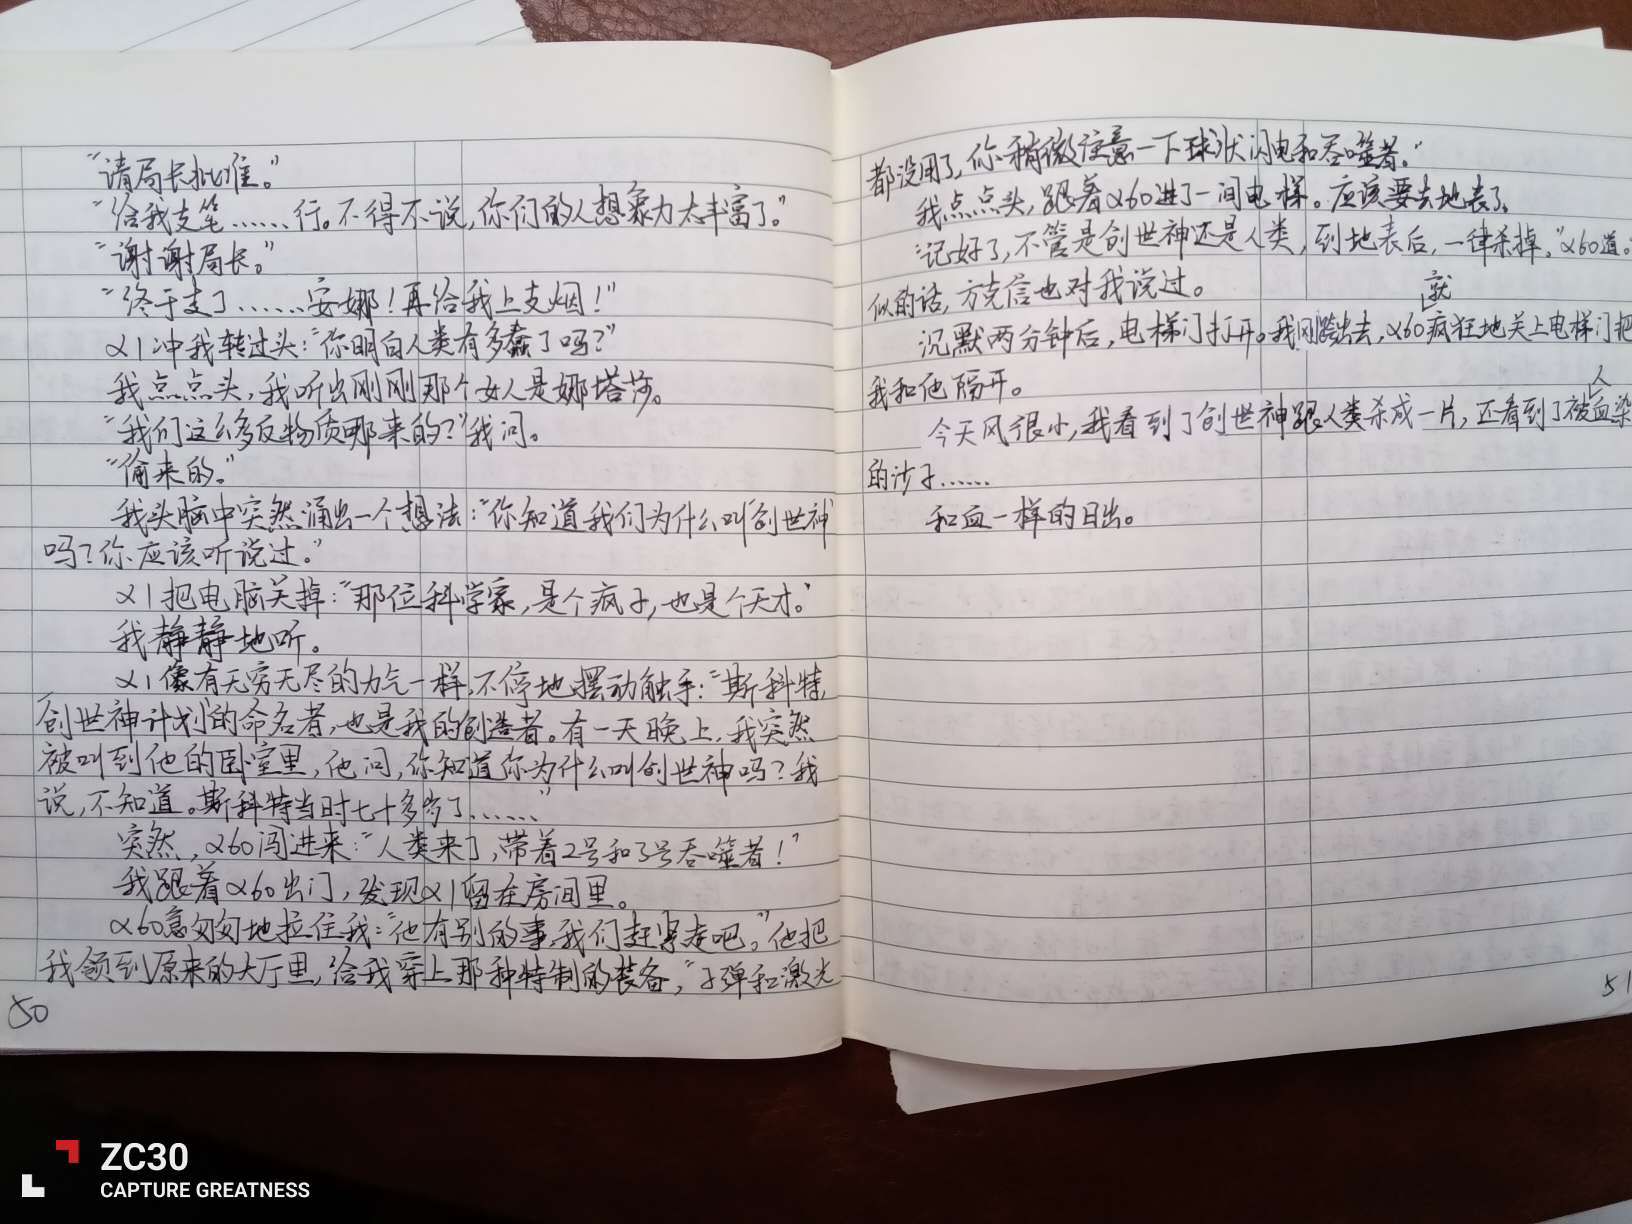 “请局长批准。”
“给我支笔……行。不得不说,你们的人想象力太丰富了。”
“谢谢局长。”
“终于走了……安娜!再给我上支烟!”
α1冲我转过头:“你明白人类有多蠢了吗?”
我点点头,我听出刚刚那个女人是娜塔莎。
“我们这么多反物质哪来的?”我问。
“偷来的。”
我头脑中突然涌出一个想法:“你知道我们为什么叫创世神
吗?你应该听说过。”
α1把电脑关掉:“那位科学家,是个疯子,也是个天才。”
我静静地听。
α1像有无穷无尽的力气一样,不停地摆动触手:“斯科特,
创世神计划的命名者,也是我的创造者。有一天晚上,我突然
被叫到他的卧室里,他问,你知道你为什么叫创世神吗?我
说,不知道。斯科特当时七十多岁了……”
突然,α60闯进来:“人类来了,带着2号和3号吞噬者!”
我跟着α60出门,发现α1留在房间里。
α60急匆匆地拉住我:“他有别的事,我们赶紧走吧。”他把
我领到原来的大厅里,给我穿上那种特制的装备,“子弹和激光
50
都没用了,你稍微注意一下球状闪电和吞噬者。”
我点点头,跟着α60进了一间电梯。应该要去地表了。
“记好了,不管是创世神还是人类,到地表后,一律杀掉。”α60道。
似的话,方克信也对我说过。
沉默两分钟后,电梯门打开。我刚踏出去,α60就疯狂地关上电梯门把
我和他隔开。
今天风很小,我看到了创世神跟人类杀成一片,还看到了被人血染
的沙子……
和血一样的日出。
51
ZC30
CAPTURE GREATNESS